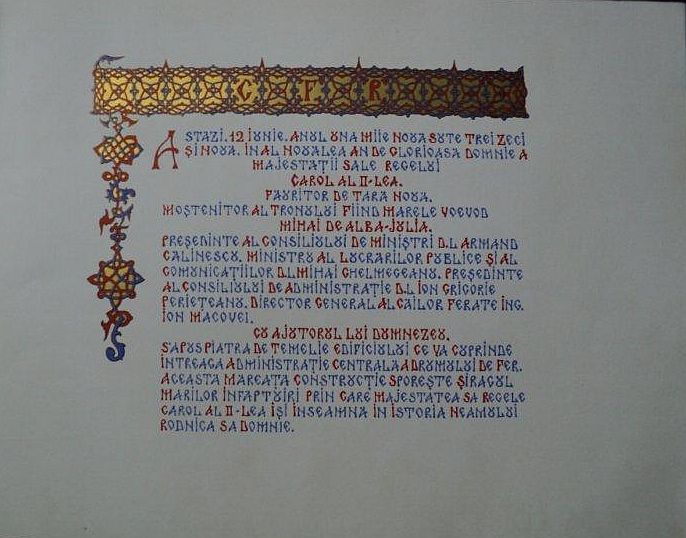 C F R
ASTAZI, 12 IUNIE, ANUL UNA MIIE NOUA SUTE TREI ZECI
ȘI NOUA, IN AL NOUALEA AN DE GLORIOASA DOMNIE A
MAJESTAȚII SALE REGELUI
CAROL AL II-LEA,
FAURITOR DE TARA NOUA,
MOȘTENITOR AL TRONULUI FIIND MARELE VOEVOD
MIHAI DE ALBA-JULIA,
PREȘEDINTE AL CONSILIULUI DE MINIȘTRI D.L ARMAND
CALINESCU, MINISTRU AL LUCRARILOR PUBLICE ȘI AL
COMUNICAȚIILOR D.L MIHAI GHELMEGEANU, PREȘEDINTE
AL CONSILIULUI DE ADMINISTRAȚIE D.L ION GRIGORIE
PERIEȚEANU, DIRECTOR GENERAL AL CAILOR FERATE ING.
ION MACOVEI,
CU AJUTORUL LUI DUMNEZEU,
S'A PUS PIATRA DE TEMELIE EDIFICIULUI CE VA CUPRINDE
INTREAGA ADMINISTRAȚIE CENTRALA A DRUMULUI DE FER.
ACEASTA MAREAȚA CONSTRUCȚIE SPOREȘTE ȘIRAGUL
MARILOR INFAPTUIRI PRIN CARE MAJESTATEA SA REGELE
CAROL AL II-LEA IȘI INSEAMNA IN ISTORIA NEAMULUI
RODNICA SA DOMNIE.